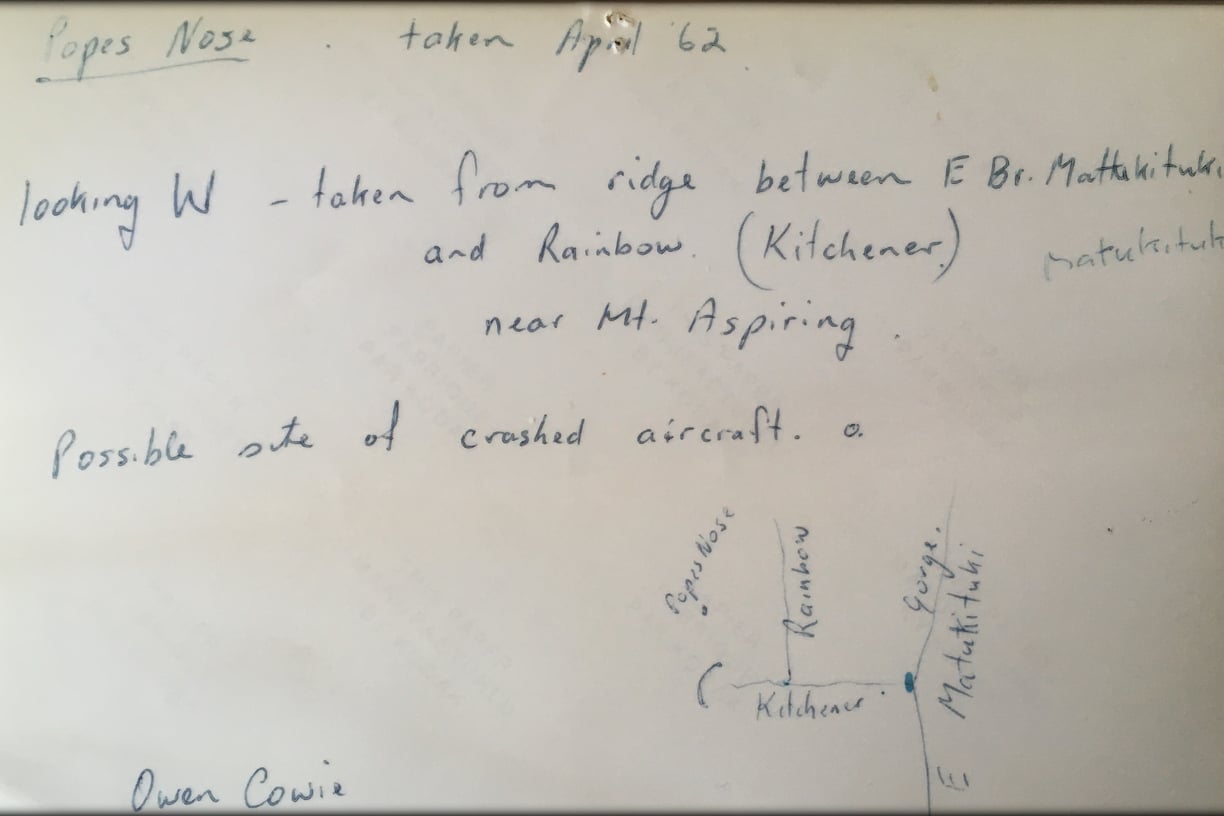 Popes Nose . taken April '62
looking W - taken from ridge between E Br. Mattukituki
and Rainbow. (Kitchener)
Matukituk
near Mt. Aspiring.
Possible site of crashed aircraft. o.
Popes Nose
Rainbow
Gorge.
E Matukituki
Kitchener.
Owen Cowie